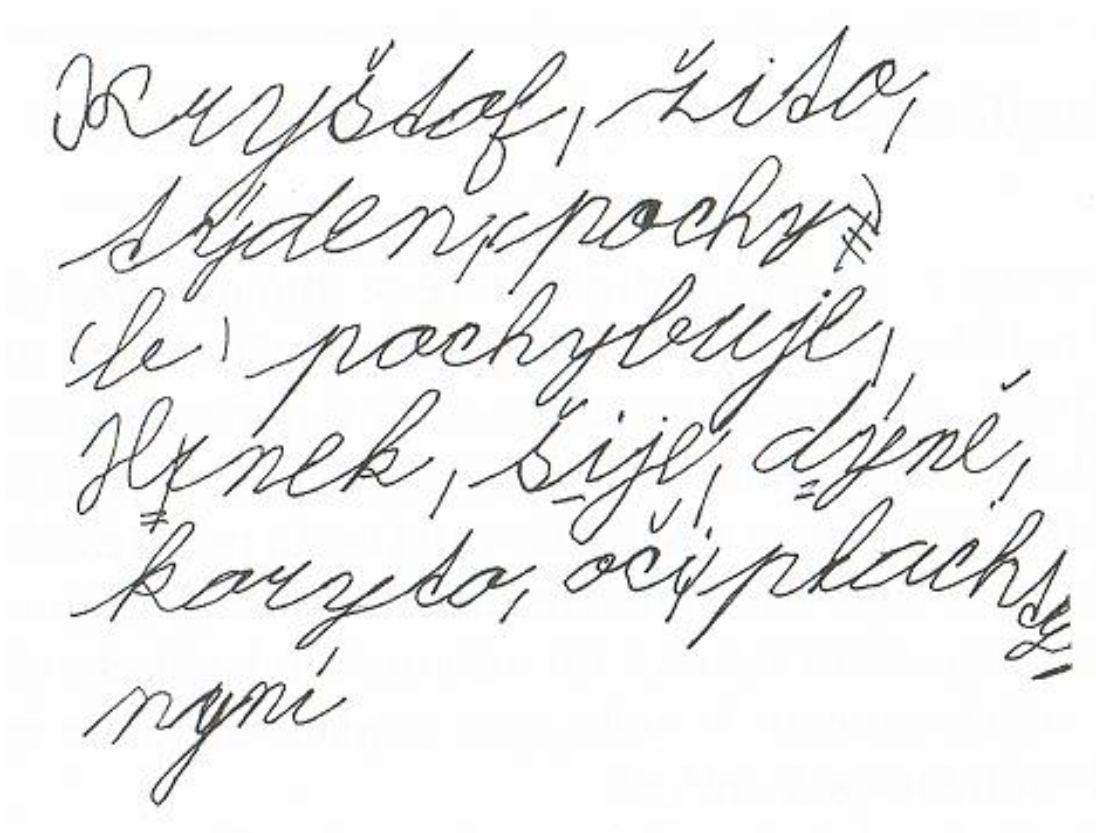 Kryštof, žito,
týden, pochy)
(le) pochybuje,
Hynek, šije, dýně,
koryto, oči, plachty
nyní